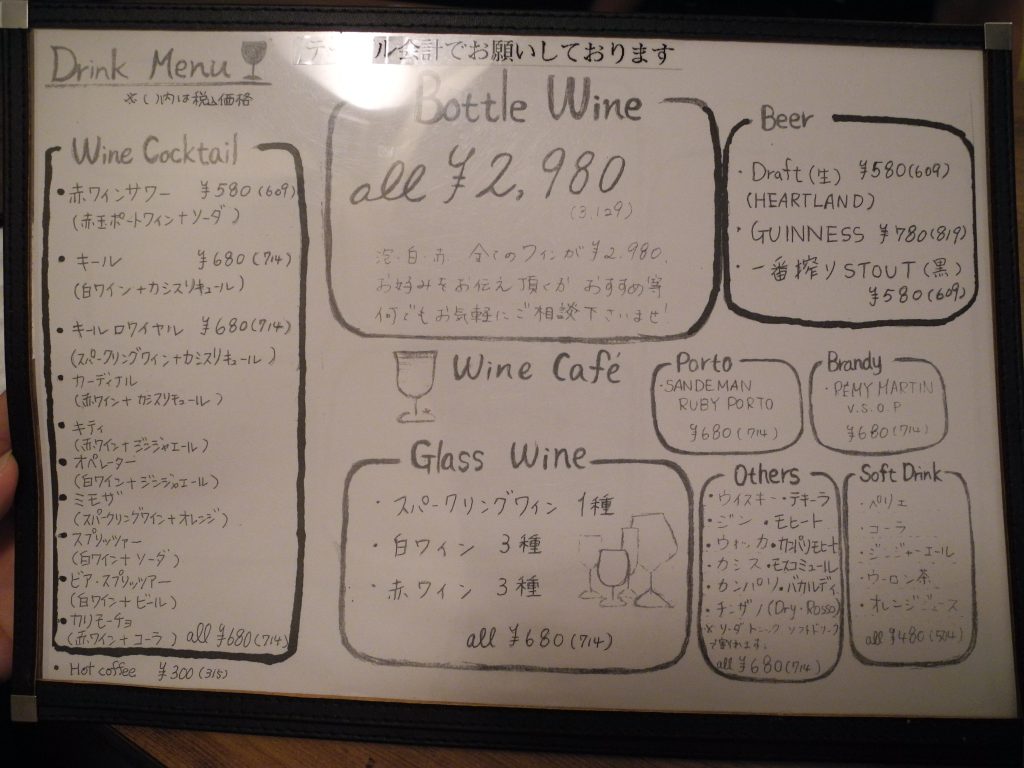 Drink Menu
※( )内は税込価格
ル会計でお願いしております
Wine Cocktail
・赤ワインサワー ¥580(609)
(赤玉ポートワイン+ソーダ)
・キール ¥680(714)
(白ワイン+カシスリキュール)
・キールロワイヤル ¥680(714)
(スパークリングワイン+カシスリキュール)
・カーディナル
(赤ワイン+カシスリキュール)
・キティ
(赤ワイン+ジンジャエール)
・オペレーター
(白ワイン+ジンジャエール)
・ミモザ
(スパークリングワイン+オレンジ)
・スプリッツァー
(白ワイン+ソーダ)
・ビア・スプリッツアー
(白ワイン+ビール)
・カリモーチョ
(赤ワイン+コーラ) all ¥680(714)
・Hot coffee ¥300(315)
Bottle Wine
all ¥2,980
(3,129)
泡・白・赤 全てのワインが¥2,980、
お好みをお伝え頂くか おすすめ等
何でもお気軽にご相談下さいませ!
Wine Café
Glass Wine
・スパークリングワイン 1種
・白ワイン 3種
・赤ワイン 3種
all ¥680(714)
Beer
・Draft(生) ¥580(609)
(HEARTLAND)
・GUINNESS ¥780(819)
・一番搾りSTOUT(黒)
¥580(609)
Porto
・SANDEMAN
RUBY PORTO
¥680(714)
Brandy
・REMY MARTIN
V.S.O.P
¥680(714)
Others
・ウイスキー・テキーラ
・ジン・モヒート
・ウォッカ・カンパリモヒート
・カシス・モスコミュール
・カンパリ・バカルディ
・チンザノ(Dry・Rosso)
※ソーダ トニック ソフトドリンク
で割れます。
all ¥680(714)
Soft Drink
・ペリエ
・コーラ
・ジンジャーエール
・ウーロン茶
・オレンジジュース
all ¥480(504)